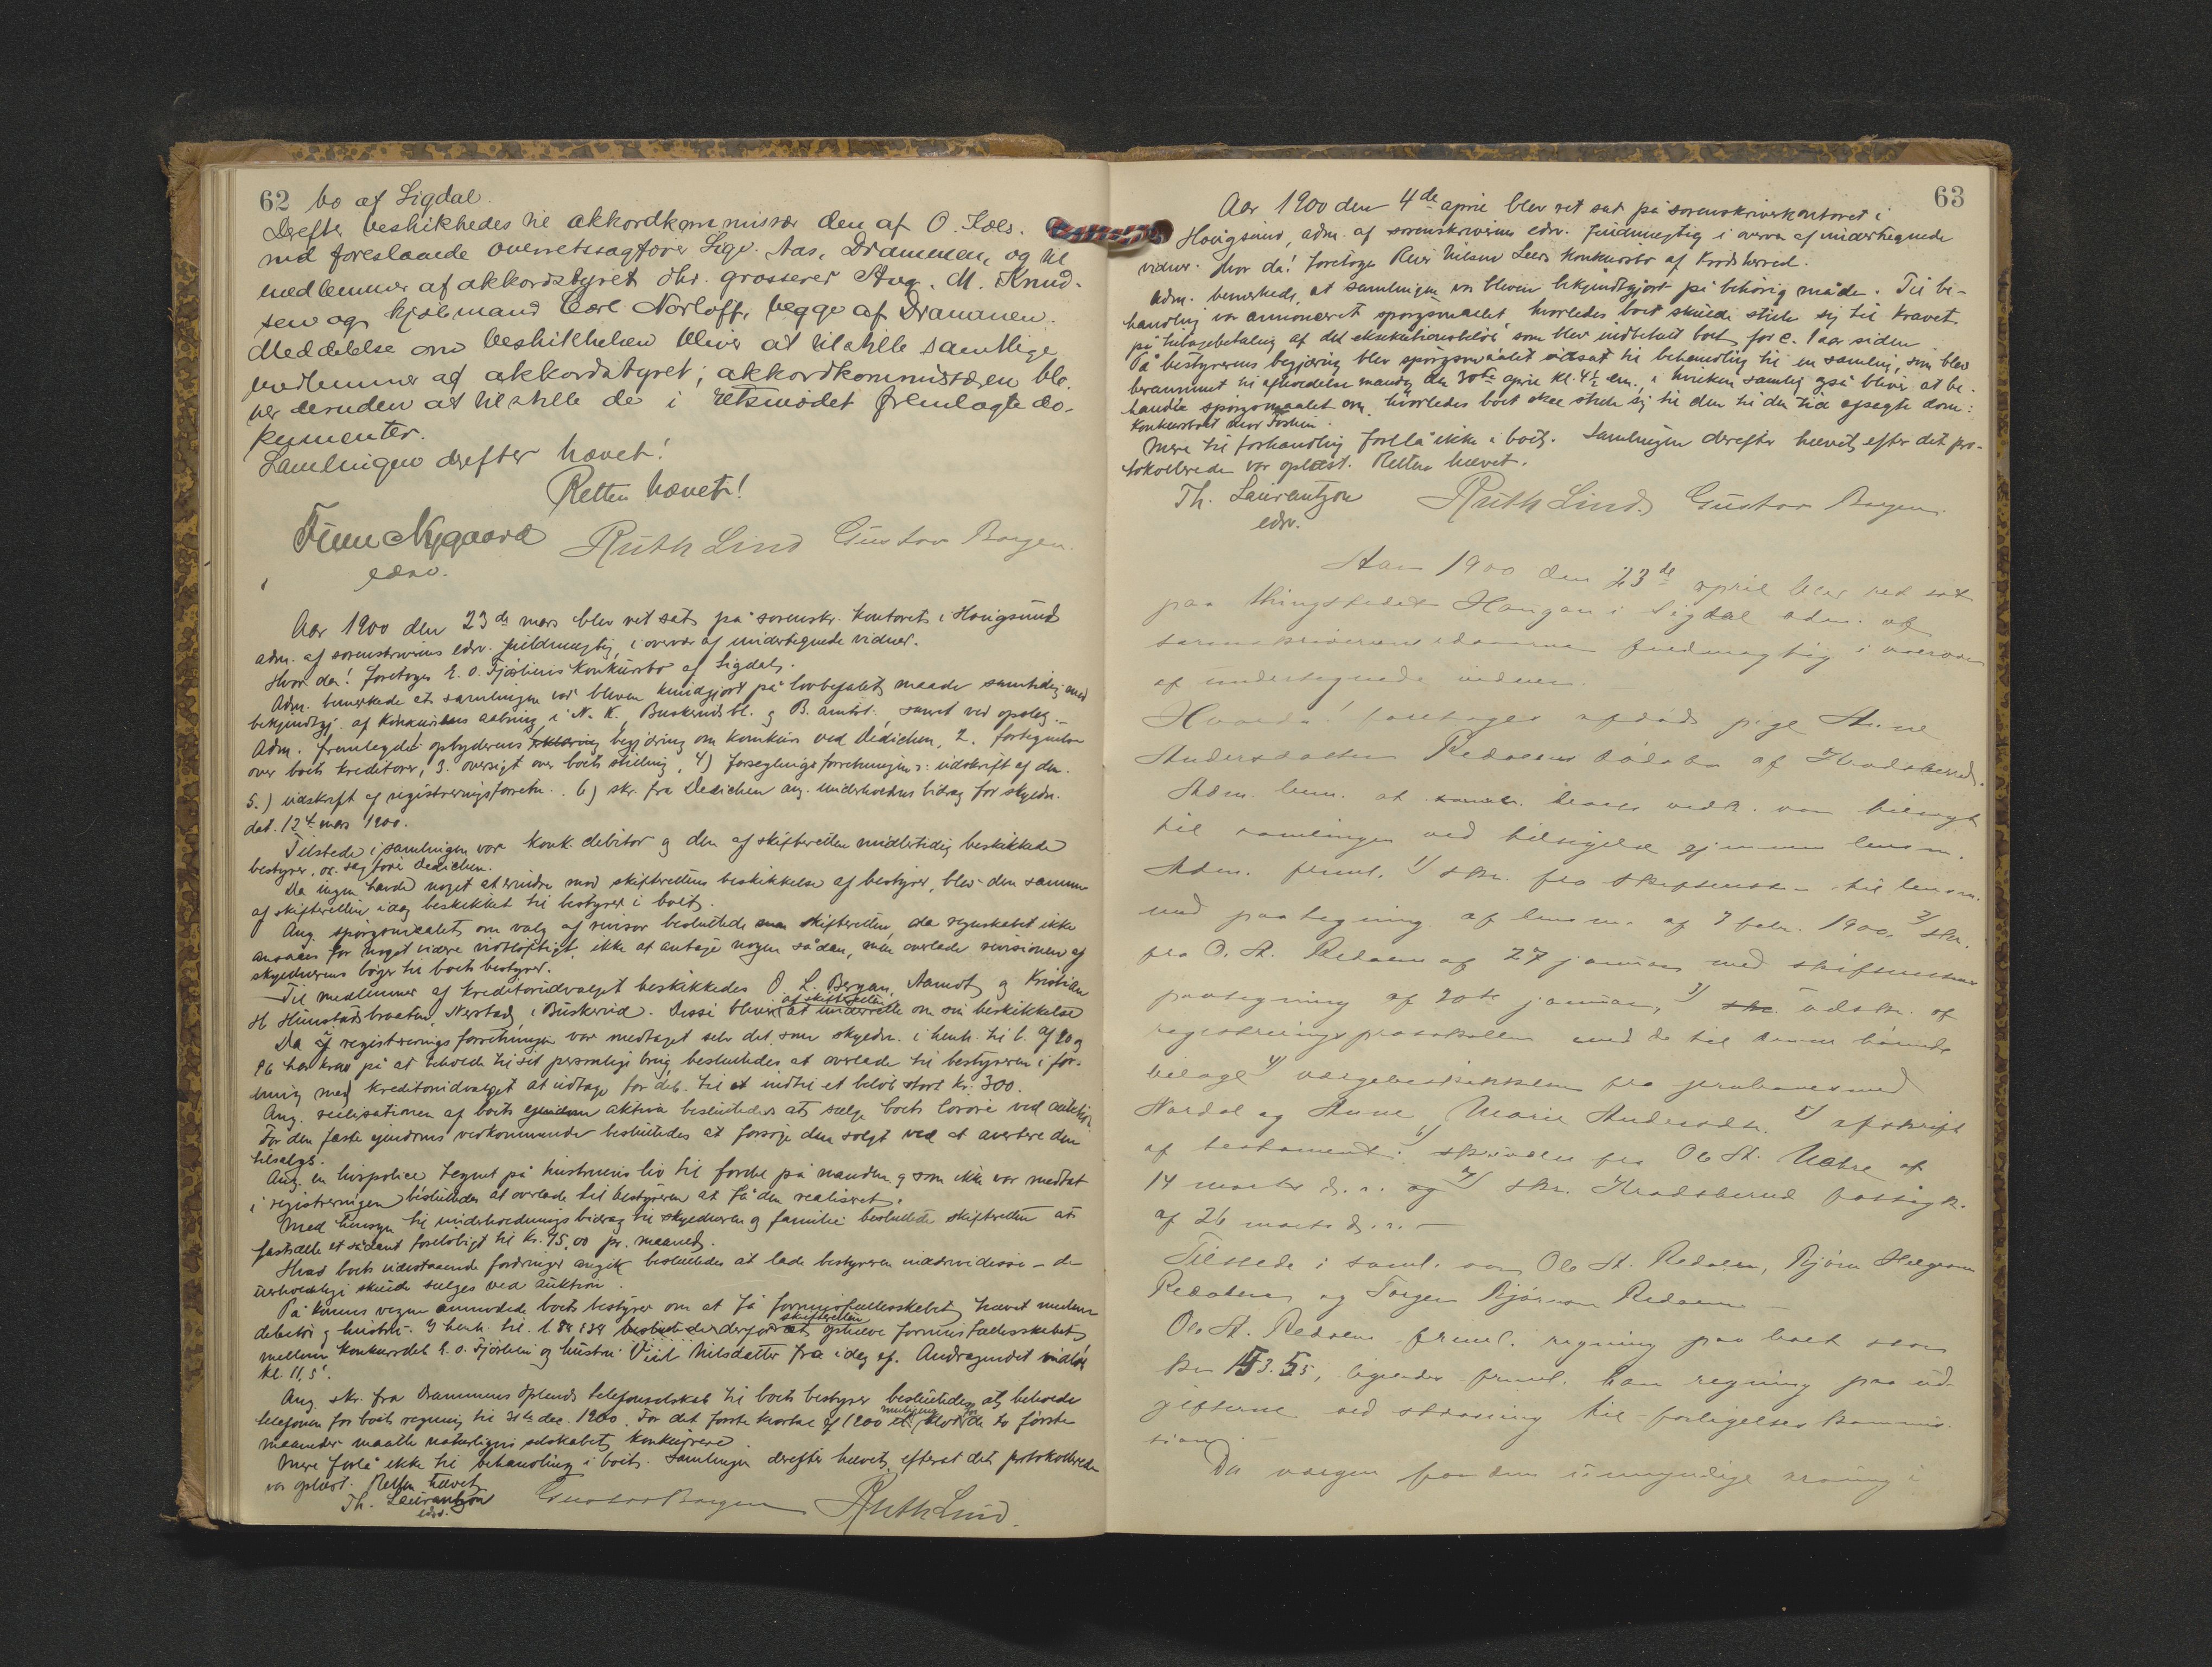 62 bo af Sigdal.
Derefter beskikkedes til akkordkommissær den af O. Kols-
rud foreslaaede overretssagfører Sigv. Aas, Drammen, og til
medlemmer af akkordstyret dhr. grosserer Aug. M. Knud-
sen og kjøbmand Carl Norloff, begge af Drammen.
Meddelelse om beskikkelsen bliver at tilstille samtlige
medlemmer af akkordstyret; akkordkommissæren bli-
ver desuden at tilstille de i retsmødet fremlagte do-
kumenter.
Samlingen derefter hævet!
Retten hævet!
Finn Nygaard Ruth Lind Gustav Borgen.
edsv.
Aar 1900 den 23de mars blev ret sat på sorenskr. kontoret i Hougsund
adm. af sorenskriverens edsv. fuldmægtig, i overvær af undertegnede vidner.
Hvor da! foretoges E. O. Fjøsliens konkursbo af Sigdal.
Adm. bemerkede at samlingen var bleven kundgjort på lovbefalet maade samtidig med
bekjendtgj. af konkursens aabning i N. K., Buskeruds bl. og B. amtst., samt ved opslag. -
Adm. fremlagde opbyderens begjæring om konkurs ved Dedichen, 2. fortegnelse
over boets kreditorer, 3. oversigt over boets stilling, 4) forseglingsforretningen ɔ: udskrift af den.
5.) udskrift af registreringsforretn. 6) skr. fra Dedichen ang. underholdnsbidrag for skyldn.
dat. 12te mars 1900.
Tilstede i samlingen var konk. debitor og den af skifteretten midlertidig beskikkede
bestyrer, or. sagfører Dedichen.
Da ingen havde noget at erindre mod skifterettens beskikkelse af bestyrer, blev den samme
af skifteretten idag beskikket til bestyrer i boet.
Ang. spørgsmaalet om valg af revisor besluttede skifteretten, da regnskabet ikke
ansaaes for noget videre vidtløftigt, ikke at antage nogen sådan, men overlade revisionen af
skyldnerens bøger til boets bestyrer.
Til medlemmer af kreditorudvalget beskikkedes O. L. Bergan, Aamot og Kristian
H. Hunstadbraaten, Nerstad i Buskerud. Disse bliver af skifteretten at underrette om sin beskikkelse
Da der i registreringsforretningen var medtaget selv det som skyldn. i henh. til l. af
har krav på at beholde til sit personlige brug, besluttedes at overlade til bestyreren i for-
ening med kreditorudvalget at udtage for deb. til et indtil et beløb stort kr. 300.
Ang. realisationen af boets aktiva besluttedes at sælge boets løsøre ved auktion.
For den faste eiendoms vedkommende besluttedes at forsøge den solgt ved at avertere den
tilsalgs.
Ang. en livspolice tegnet på hustruens liv til fordel på manden og som ikke var medtat
i registreringen besluttedes at overlade til bestyreren at få den realiseret.
Med hensyn til underholdningsbidrag til skyldneren og familie besluttede skifteretten at
fastsætte et sådant foreløbigt til kr. 75,00 pr. maaned.
Hvad boets udestaaende fordringer angik besluttedes at lade bestyreren inddrive disse - de
uerholdelige skulde sælges ved auktion.
På konens vegne anmodede boets bestyrer om at få formuesfællesskabet hævet mellem
debitor og hustru. I henh. til l. besluttede derfor skifteretten at ophæve formuesfællesskabet
mellem konkursdeb. E. O. Fjøslien og hustru Nilsdatter fra idag af. Andragendet indløb
kl. 11,5'.
Ang. skr. fra Drammens Oplands telefonselskab til boets bestyrer besluttedes at beholde
telefonen for boets regning til 31te dec. 1900. For det første kvartal af 1900 de to første
maaneder maatte naturligvis selskabet konkurrere.
Mere forlå ikke til behandling i boet. Samlingen derefter hævet efterat det protokollerede
var oplæst. Retten hævet.
Th. Laurantzon Gustav Borgen Ruth Lind.
edsv.
63
Aar 1900 den 4de april blev ret sat på sorenskriverkontoret i
Hougsund, adm. af sorenskriverens edsv. fuldmægtig i overvær af undertegnede
vidner. Hvor da! foretoges Nilsen Leers konkursbo af Krødsherred.
Adm. bemerkede, at samlingen var bleven bekjendtgjort på behørig måde. Til be-
handling var annonceret spørgsmaalet, hvorledes boet skulde stille sig til kravet
på tilbagebetaling af det eksekutionsbeløb som blev indbetalt boet for c. 1 aar siden
På bestyrerens begjæring blev spørgsmaalet udsat til behandling til en samling, som blev
berammet til afholdelse mandag den 30te april kl. 4½ em., i hvilken samling også bliver at be-
handle spørgsmaalet om, hvorledes boet skal stille sig til den til den tid afsagte dom:
Konkursboet mod
Mere til forhandling forelå ikke i boet. Samlingen derefter hævet, efter det pro-
tokollerede var oplæst. Retten hævet.
Th. Laurantzon Ruth Lind Gustav Borgen.
edsv.
Aar 1900 den 23de april blev ret sat
paa thingstedet Haugan i Sigdal adm. af
sorenskriverens edsvorne fuldmægtig i overvær
af undertegnede vidner.
Hvorda! foretoges afdøde pige Anne
Andersdatter Redalens dødsbo af Krødsherred.
Adm. bem. at samtl. vedk. var tilsagt
til samlingen ved tilsigelse gjennem lensm.
Adm. freml. 1/ skr. fra skifteretten til lensm.
med paategning af lensm. af 7 febr. 1900. 2/ skr.
fra O. A. Redalen af 27 januar med skifterettens
paategning af 30te januar, 3/ udskr. af
registreringsprotokollen med de til denne hørende
bilage 4/ værgebeskikkelse fra
Nordal og Anne Marie Andersdtr. 5/ afskrift
af testament. 6/ skrivelse fra Ole A. af
14 marts d. a. og 7/ skr. Krødsherred fattigk.
af 26 marts d. a. -
Tilstede i saml. var Ole A. Redalen, Bjørn Helgesen
Redalen og Torger Bjørnson Redalen
Ole A. Redalen freml. regning paa boet stor
kr 153.55, ligeledes freml. han regning paa ud-
gifterne ved stævning til forligelses kommis-
sion.
Da værgen for den umyndige arving i